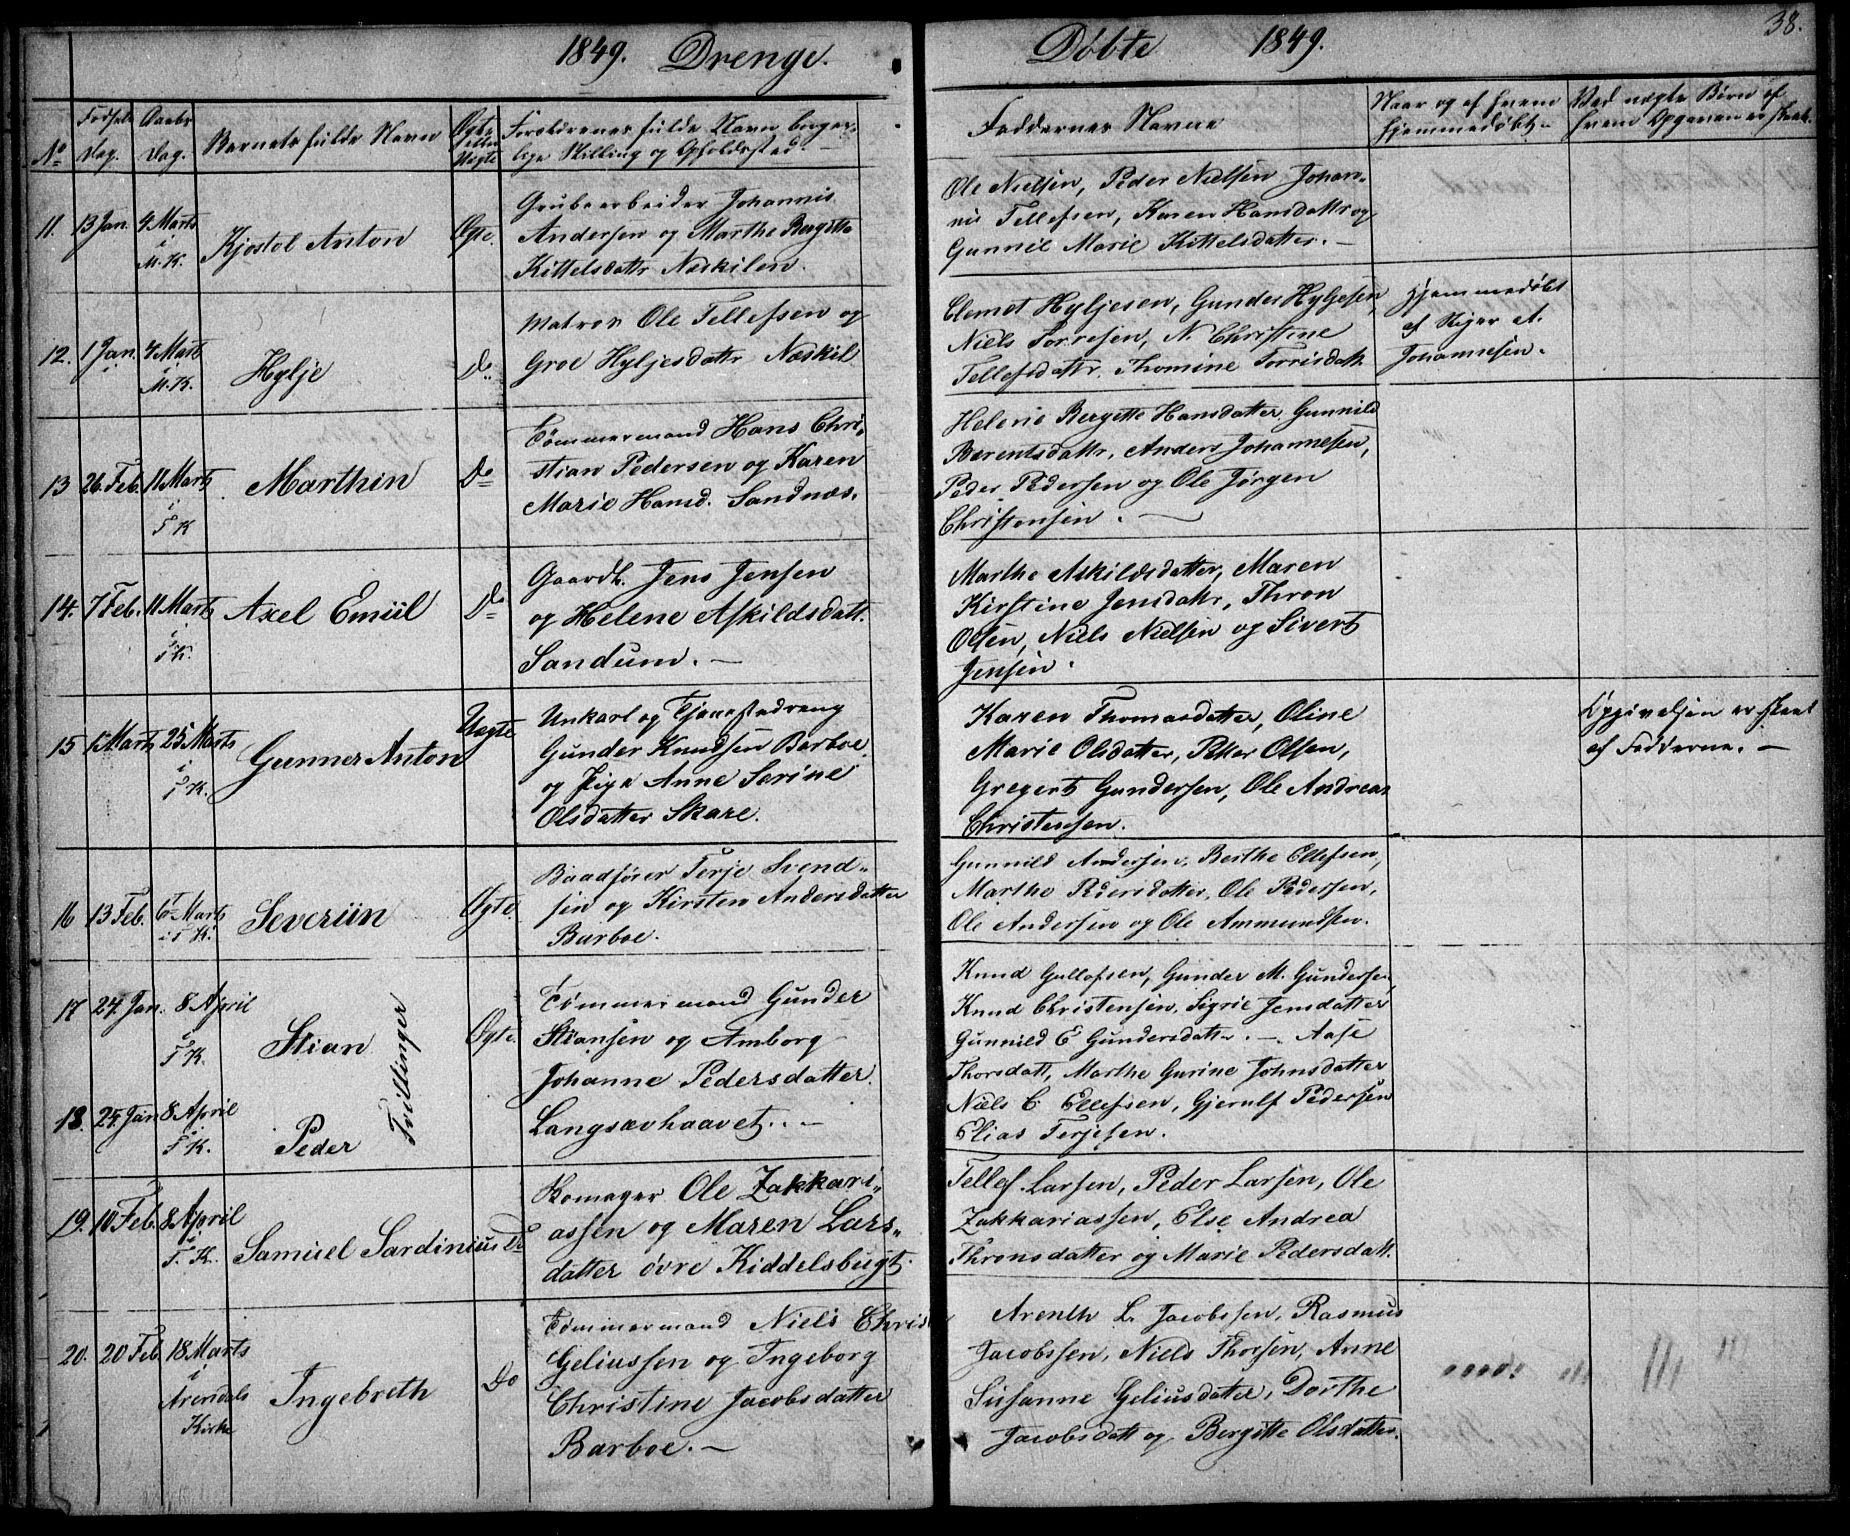 1849. Drenge. Døbte 1849. 38.
No Fødsels Dag. Daabs Dag. Barnets fulde Navn Ægte eller Uægte Forældrenes fulde Navn, borger-
lige Stilling og Opholdssted. Faddernes Navne Naar og af hvem hjemmedøbt Ved uægte Børn af hvem Opgaven er skeet.
11. 13 Jan. 4 Marts i M. K. Kjostol Anton Ægte. Grubearbeider Johannis
Andersen og Marthe Bergitte
Kittelsdattr Næskilen.
Ole Nielsen, Peder Nielsen Johan-
nis Tellefsen, Karen Hansdattr og
Gunnil Marie Kittelsdatter. —
12. 1 Jan. 4 Marts i M. K. Hylje Do Matros Ole Tellefsen og
Groe Hyljesdattr Næskil
Clemet Hyljesen, Gunder Hyljesen,
Niels Torresen, N. Christine
Tellefsdattr. Thomine Torrisdatt.
Hjemmedøbt
af Reier A.
Johannesen.
13 26 Feb. 11 Marts i T K Marthin Do Tømmermand Hans Chri-
stian Pedersen og Karen
Marie Hansd. Sandnæs.
Helene Bergitte Hansdatter Gunnild
Berentsdattr, Anders Johannesen,
Peder Pedersen og Ole Jørgen
Christensen. —
14. 7 Feb. 11 Marts i T K. Axel Emiil Do Gaardb. Jens Jensen
og Helene Askildsdatt.
Sandum. —
Marthe Askildsdatter, Maren
Kirstine Jensdattr, Thron
Olsen, Niels Nielsen og Sivert
Jensen.
15 1 Marts 25 Marts i T K. Gunner Anton Uægte Unkarl og Tjenestedreng
Gunder Knudsen Barboe
og Pige Anne Serine
Olsdatter Skare.
Karen Thomasdatter, Oline
Marie Olsdatter, Petter Olsen,
Gregert Gundersen, Ole Andreas
Christensen.
Opgivelsen er skeet
af Fadderne. —
16 13 Feb. Marts i T K. Severiin Ægte. Baadfører Terje Svend-
sen og Kirsten Andersdatter
Barboe.
Gunnild Andersen, Berthe Ellefsen,
Marthe Pedersdatter, Ole Pedersen,
Ole Andersen og Ole Ammundsen.
17 24 Jan. 8 April i T K. Stian Tvillinger Ægte. Tømmermand Gunder
Stiansen og Amborg
Johanne Pedersdatter.
Langsævhaavet. . —
Knud Gullofsen, Gunder M. Gundersen,
Knud Christensen, Sigrie Jensdatter
Gunnild E Gundersdattr. —. Aase
Thorsdatt, Marthe Gurine Johnsdatter
Niels C. Ellefsen, Gjerulf Pedersen
Elias Terjesen.
18. 24 Jan 8 April i T K. Peder
19. 10 Feb. 8 April i T. K. Samuel Sardinius Do Ole Zakkari-
assen og Maren Lars-
datter övre Kiddelsbugt.
Tellef Larsen, Peder Larsen, Ole
Zakkariassen, Else Andrea
Thronsdatter og Marie Pedersdatt.
20. 20 Feb. 18 Marts i Arendals Kirke Ingebreth Do Tømmermand Niels Chris
Geliussen og Ingeborg
Christine Jacobsdatter
Barboe. —
Arenth L. Jacobssen, Rasmus
Jacobssen, Niels Thorsen, Anne
Susanne Geliusdatter, Dorthe
Jacobsdatt og Bergitte Olsdatter.